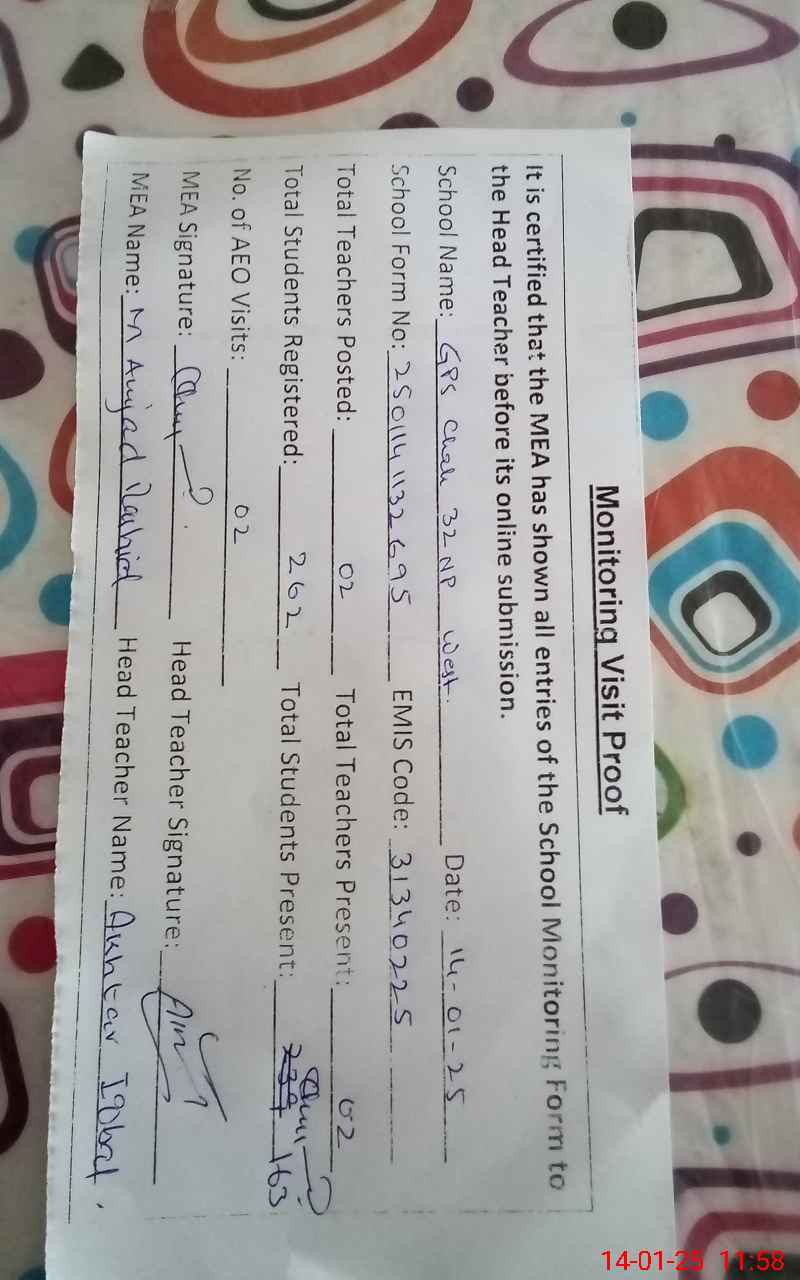 Monitoring Visit Proof
It is certified that the MEA has shown all entries of the School Monitoring Form to
the Head Teacher before its online submission.
School Name: GPS Chak 32 NP West. Date: 14-01-25
School Form No: 2501141132695 EMIS Code: 31340225
Total Teachers Posted: 02 Total Teachers Present: 02
Total Students Registered: 262 Total Students Present: 163
No. of AEO Visits: 02
MEA Signature: Head Teacher Signature:
MEA Name: M Amjad Rashid Head Teacher Name: Akhtar Iqbal.
14-01-25 11:58